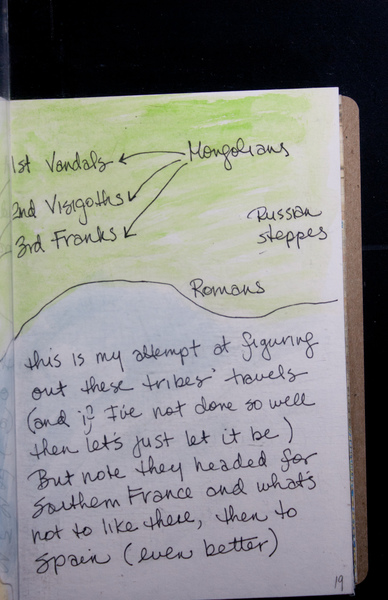 1st Vandals
Mongolians
2nd Visigoths
3rd Franks
Russian
steppes
Romans
this is my attempt at figuring
out these tribes' travels
(and if I've not done so well
then let's just let it be)
But note they headed for
Southern France and what's
not to like there, then to
Spain (even better)
19